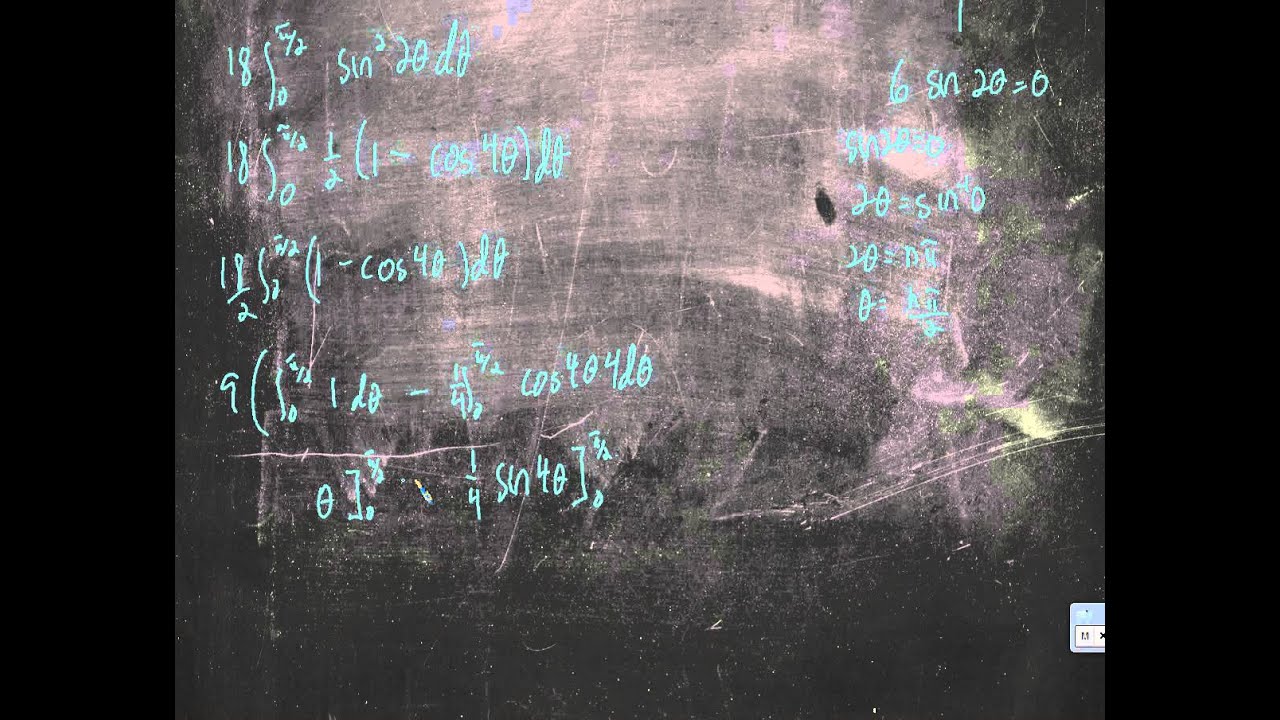 18 ∫₀^π/2 sin² 2θ dθ
18 ∫₀^π/2 1/2 (1 - cos 4θ) dθ
18/2 ∫₀^π/2 (1 - cos 4θ) dθ
9 ( ∫₀^π/2 1 dθ - 1/4 ∫₀^π/2 cos 4θ 4dθ
θ ]₀^π/2 1/4 sin 4θ ]₀^π/2
6 sin 2θ = 0
sin 2θ = 0
2θ = sin⁻¹ 0
2θ = nπ
θ = nπ/2
M ×